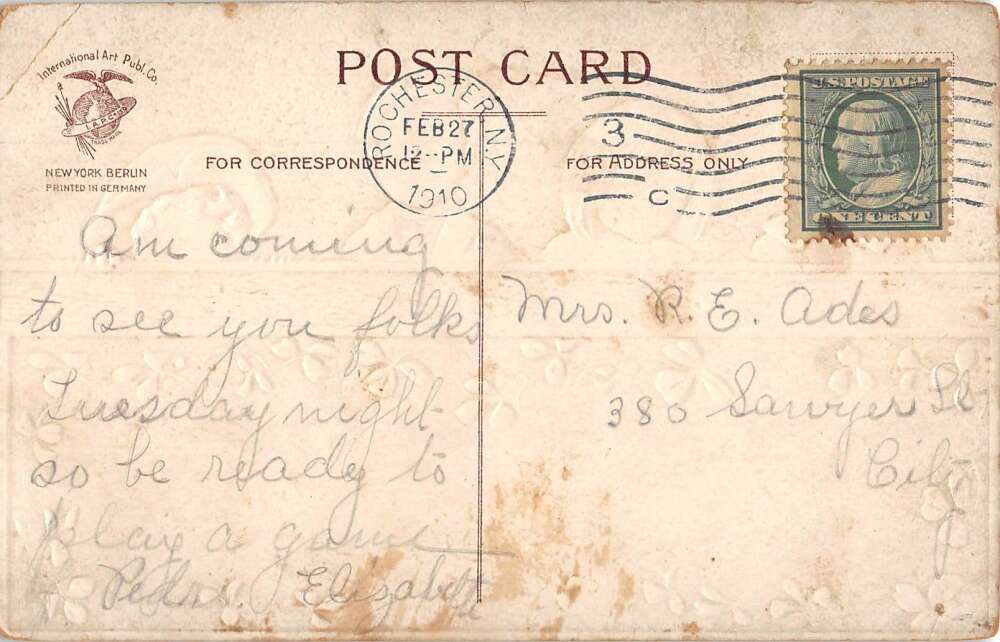 International Art Publ. Co.
I.A.P.Co.
TRADE MARK
NEW YORK BERLIN
PRINTED IN GERMANY
POST CARD
FOR CORRESPONDENCE
FOR ADDRESS ONLY
ROCHESTER, N.Y.
FEB 27
12-PM
1910
3
C
U.S. POSTAGE
ONE CENT
Am coming
to see you folks
Tuesday night
so be ready to
play a game
Pedro. Elizabeth
Mrs. R. E. Ades
380 Sawyer St
City